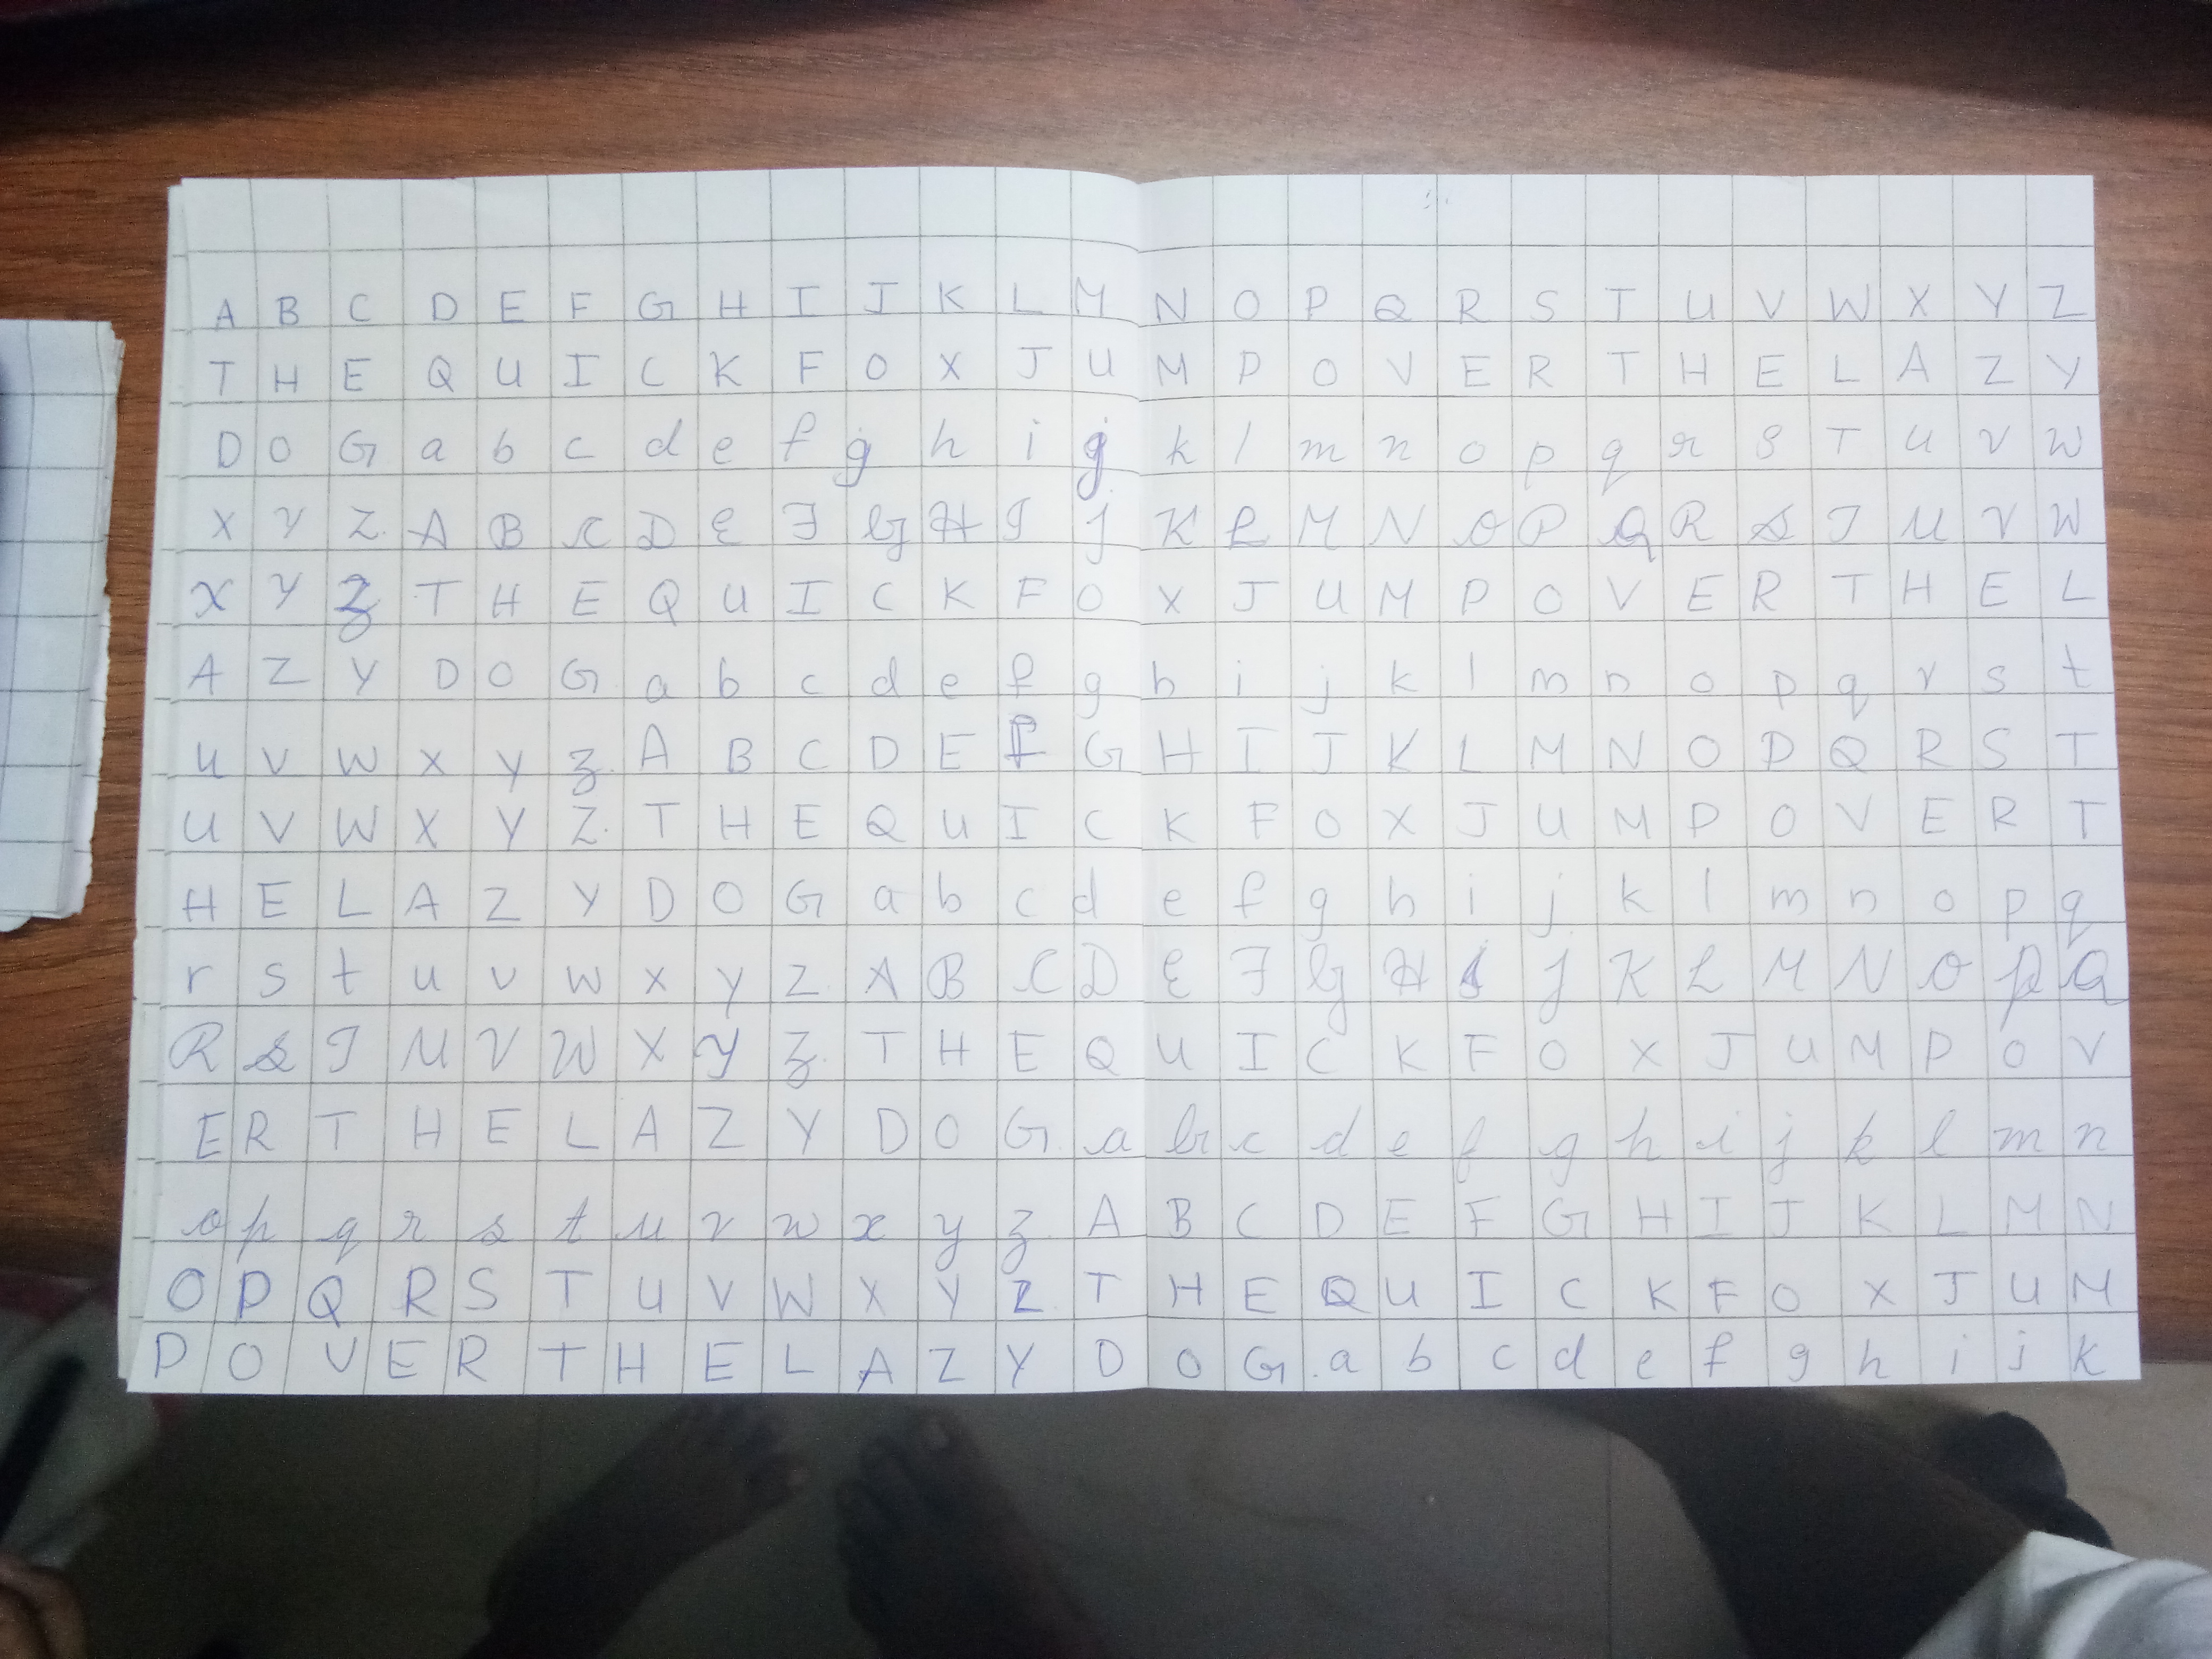 A B C D E F G H I J K L M N O P Q R S T U V W X Y Z
T H E Q U I C K F O X J U M P O V E R T H E L A Z Y
D O G a b c d e f g h i j k l m n o p q r s T u v w
X Y Z. A B C D E F G H I J K L M N O P Q R S T U V W
X Y Z T H E Q U I C K F O X J U M P O V E R T H E L
A Z Y D O G a b c d e f g h i j k l m n o p q r s t
u v w x y z. A B C D E F G H I J K L M N O P Q R S T
U V W X Y Z. T H E Q U I C K F O X J U M P O V E R T
H E L A Z Y D O G a b c d e f g h i j k l m n o p q
r s t u v w x y z. A B C D E F G H I J K L M N O P Q
R S T U V W X Y Z. T H E Q U I C K F O X J U M P O V
E R T H E L A Z Y D O G. a b c d e f g h i j k l m n
o p q r s t u v w x y z. A B C D E F G H I J K L M N
O P Q R S T U V W X Y Z. T H E Q U I C K F O X J U M
P O V E R T H E L A Z Y D O G. a b c d e f g h i j k